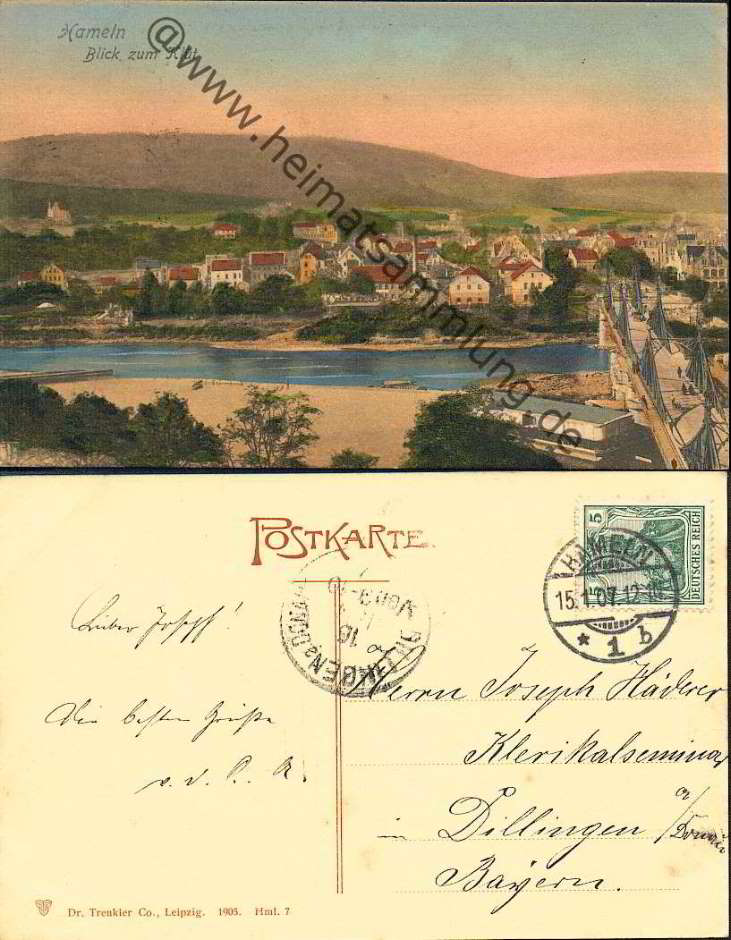 Hameln
Blick zum Klüt.
@www.heimatsammlung.de
POSTKARTE.
5
DEUTSCHES REICH
HAMELN
15.1.07.12
* 1 b
DILLINGEN a. DONAU
16
Vorm
Lieber Joseph!
Die besten Grüße
v. d.
Herrn Joseph Häderer
Klerikalseminar
in Dillingen a/Donau
Bayern.
Dr. Trenkler Co., Leipzig. 1905. Hml. 7